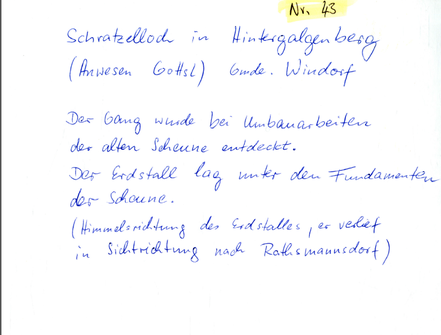 Nr. 43
Schratzelloch in Hintergalgenberg
(Anwesen Gottsl) Gmde. Windorf
Der Gang wurde bei Umbauarbeiten
der alten Scheune entdeckt.
Der Erdstall lag unter den Fundamenten
der Scheune.
(Himmelsrichtung des Erdstalles, er verlief
in Sichtrichtung nach Rathsmannsdorf)